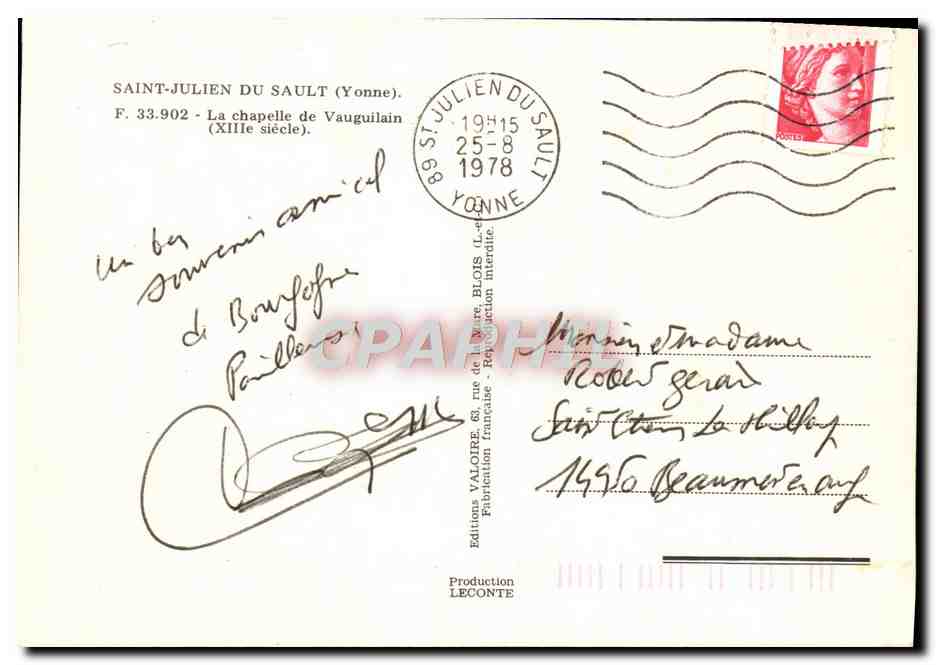 SAINT-JULIEN DU SAULT (Yonne).
F. 33.902 - La chapelle de Vauguilain
(XIIIe siécle).
89 St JULIEN DU SAULT
19H15
25-8
1978
YONNE
POSTES
un bon
souvenir amical
de Bourgogne
CPAPHIL
Editions VALOIRE, 63, rue de la Mare, BLOIS (L.-et-
Fabrication française - Reproduction interdite.
Monsieur et madame
Robert gerard
Saint
14950 Beaumont en auge
Production
LECONTE